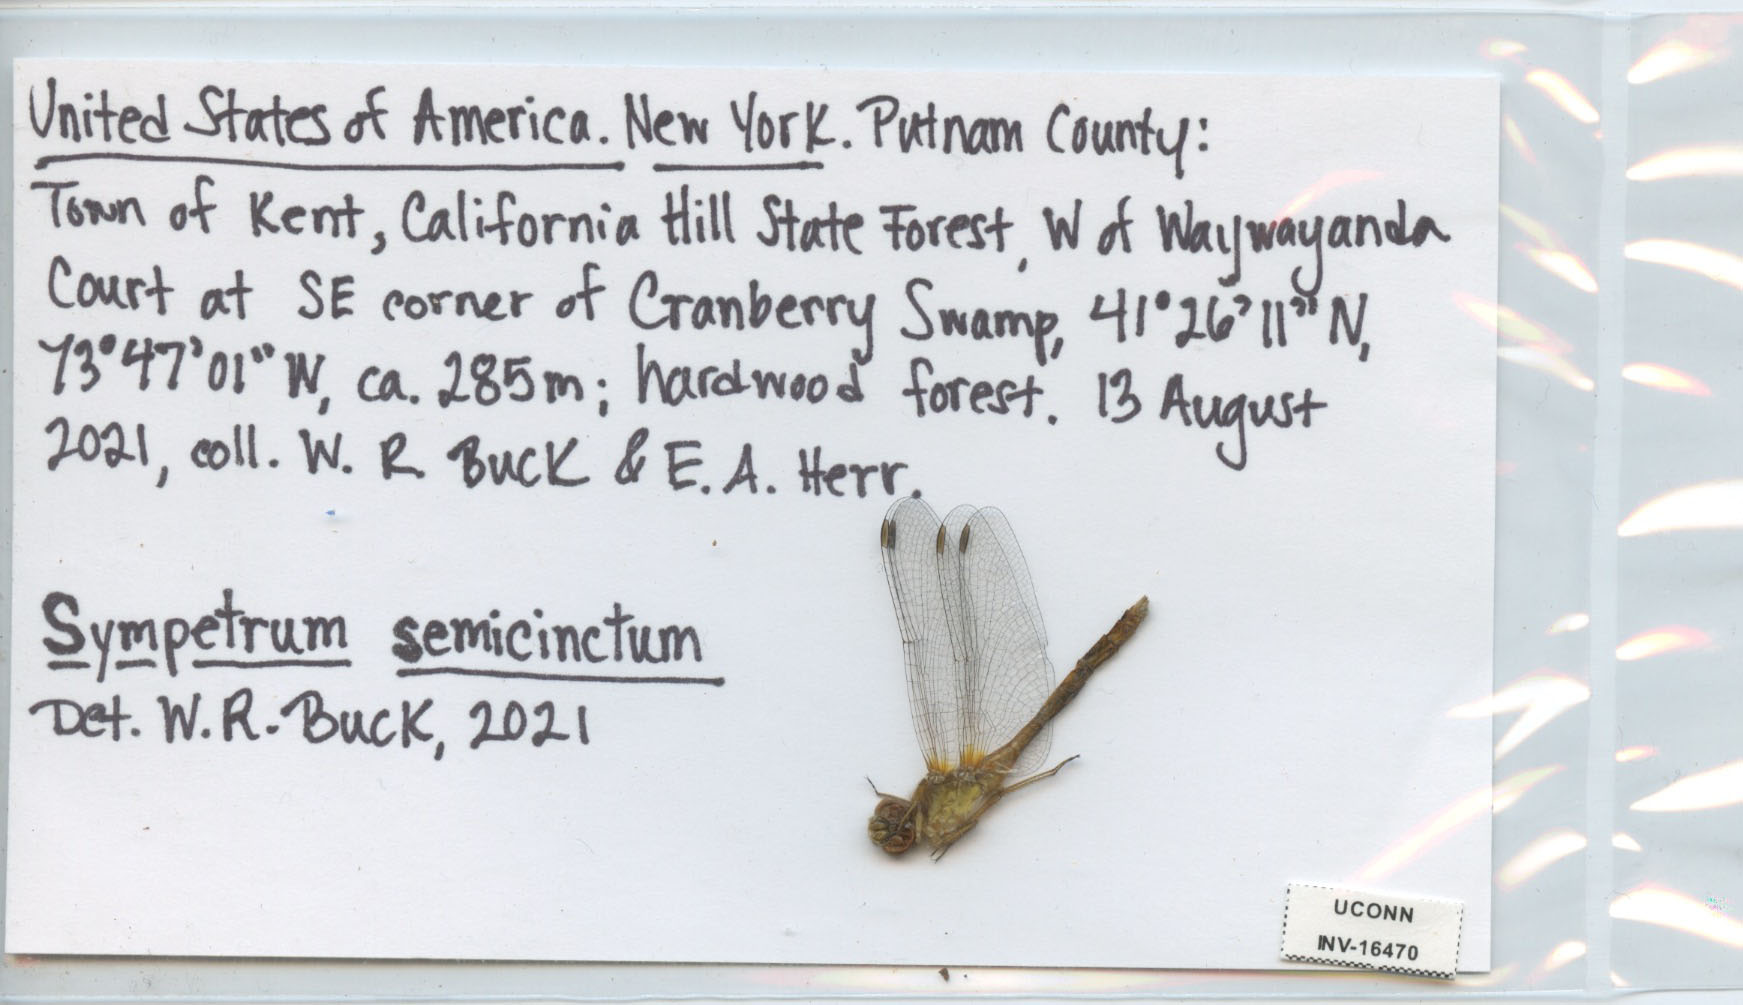 United States of America. New York. Putnam County:
Town of Kent, California Hill State Forest, W of Waywayanda
Court at SE corner of Cranberry Swamp, 41°26'11"N,
73°47'01"W, ca. 285m; hardwood forest. 13 August
2021, coll. W. R. Buck & E. A. Herr.
Sympetrum semicinctum
Det. W.R. Buck, 2021
UCONN
INV-16470